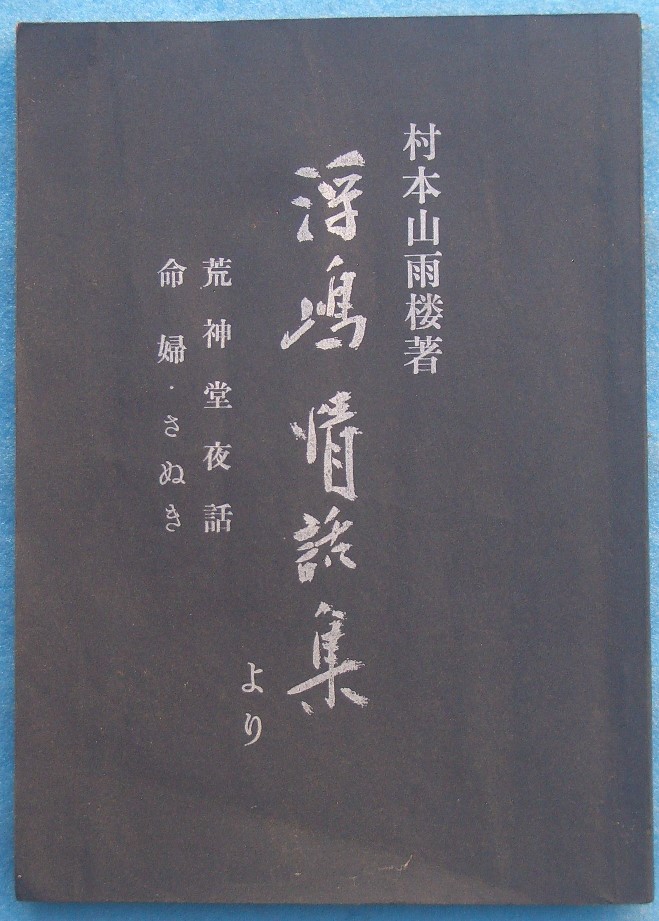 村本山雨楼著
浮嶋情話集
より
荒神堂夜話
命婦・さぬき